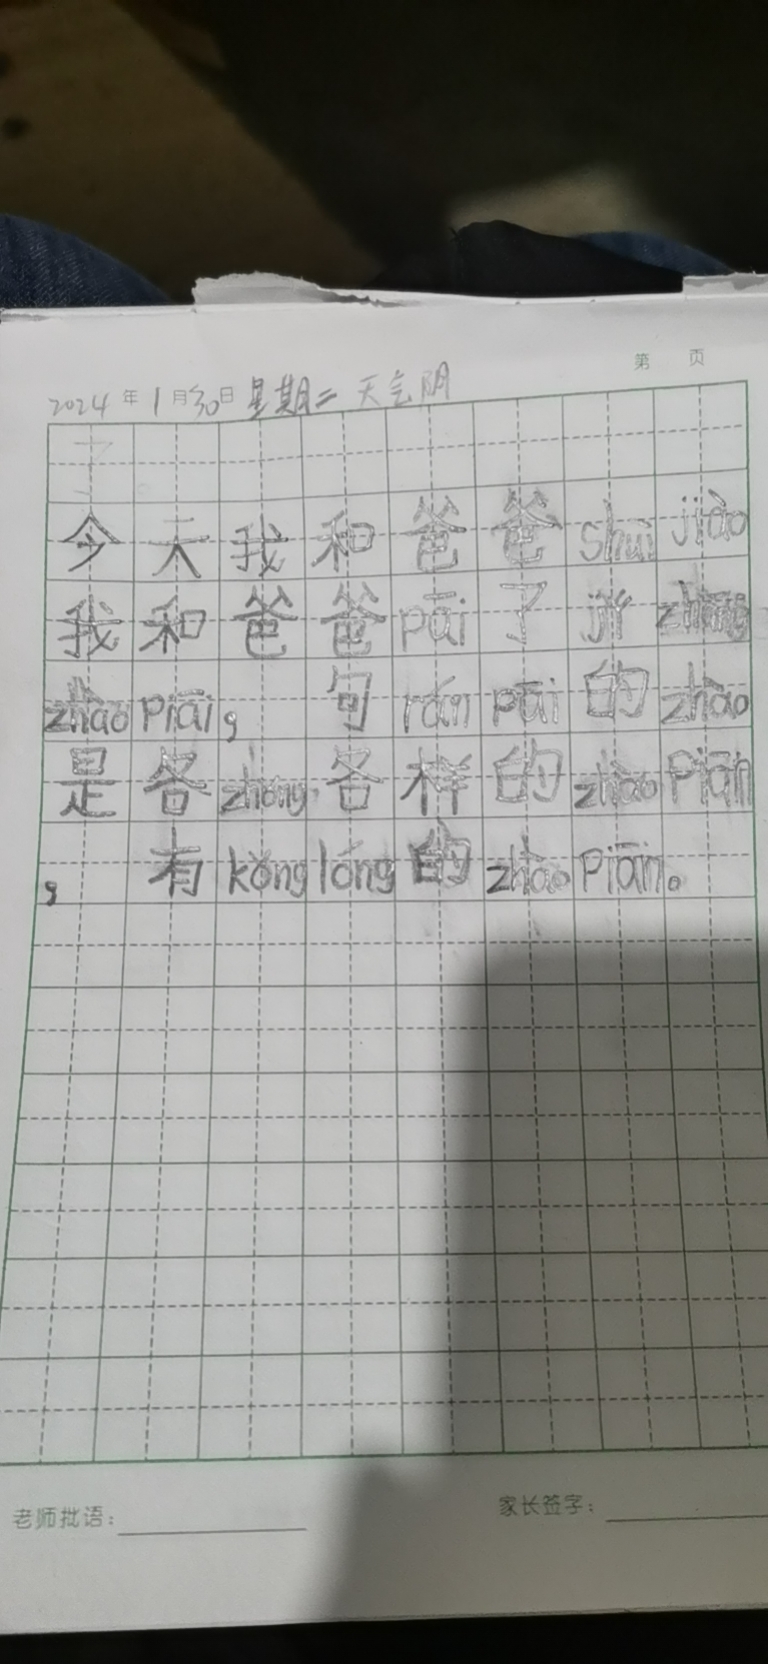 第 页
2024年1月30日 星期二 天气阴
今天我和爸爸shuì jiào
我和爸爸pāi了jǐ zhāng
zhào piāi， 句rán pāi的zhào
是各zhǒng各样的zhào piān
， 有kǒng lóng的zhào piān。
老师批语： 家长签字：